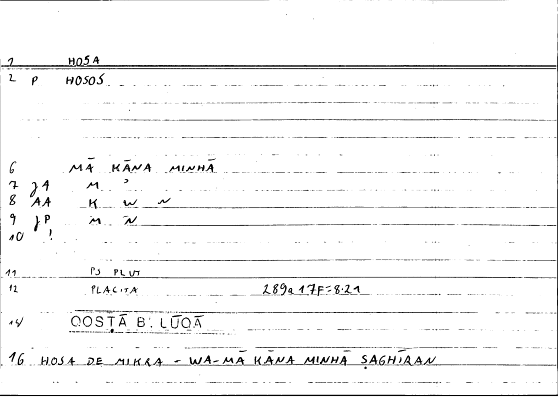 1 HOSA
2 P HOSOS
6 MĀ KĀNA MINHĀ
7 JA M ʾ
8 AA K W N
9 JP M N
10 !
11 PS PLUT
12 PLACITA 289a17F=8.21
14 QOSṬĀ B. LŪQĀ
16 HOSA DE MIKRA - WA-MĀ KĀNA MINHĀ ṢAGHĪRAN